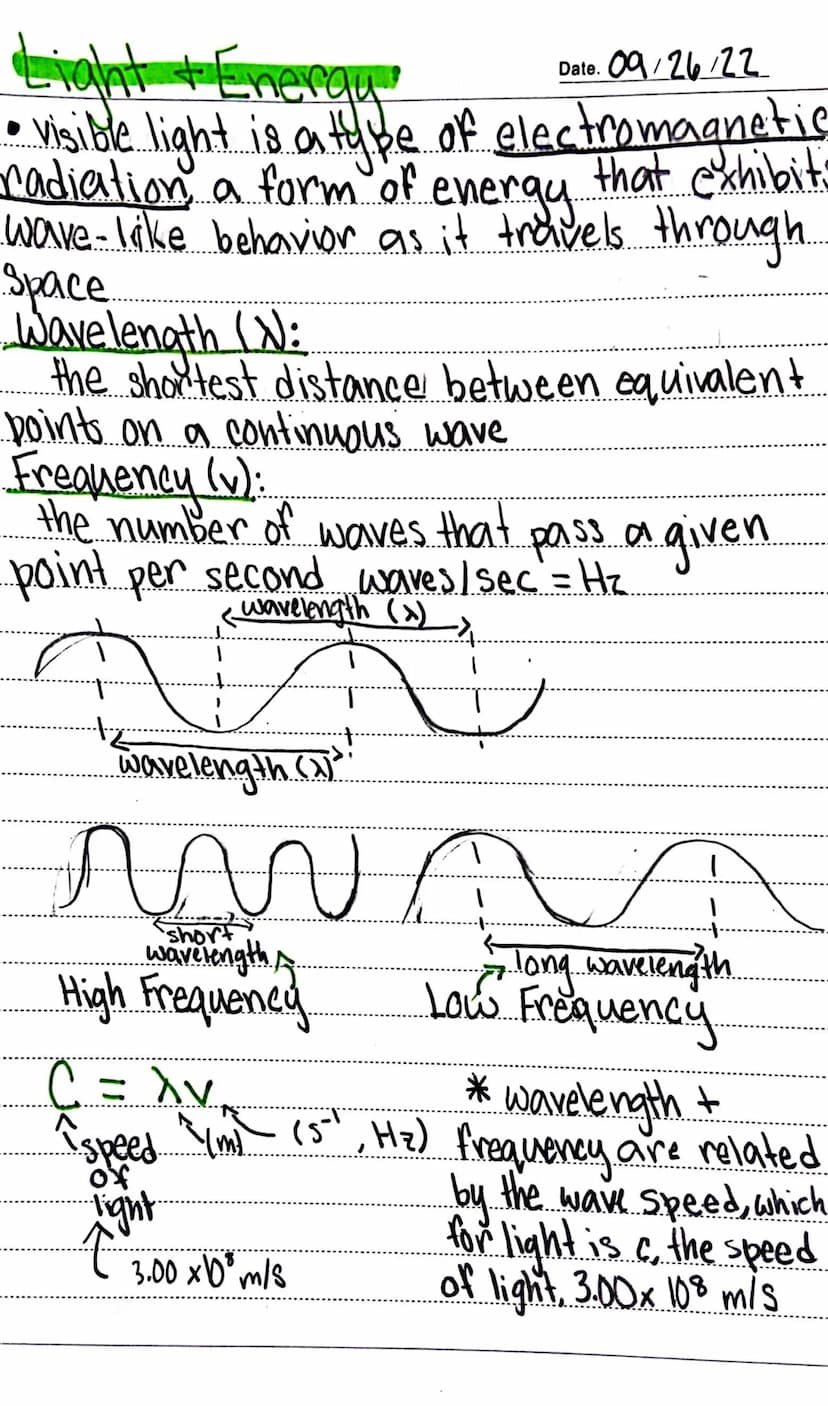 Light + Energy
Date. 09/26/22
• visible light is a type of electromagnetic
radiation, a form of energy that exhibits
wave-like behavior as it travels through
space
Wavelength (λ):
the shortest distance between equivalent
points on a continuous wave
Frequency (v):
the number of waves that pass a given
point per second waves/sec = Hz
wavelength (λ)
wavelength (λ)
short
wavelength
long wavelength
High Frequency
Low Frequency
C = λv
(m) (s⁻¹, Hz)
speed
of
light
3.00 x10⁸ m/s
* wavelength +
frequency are related
by the wave speed, which
for light is c, the speed
of light, 3.00 x 10⁸ m/s